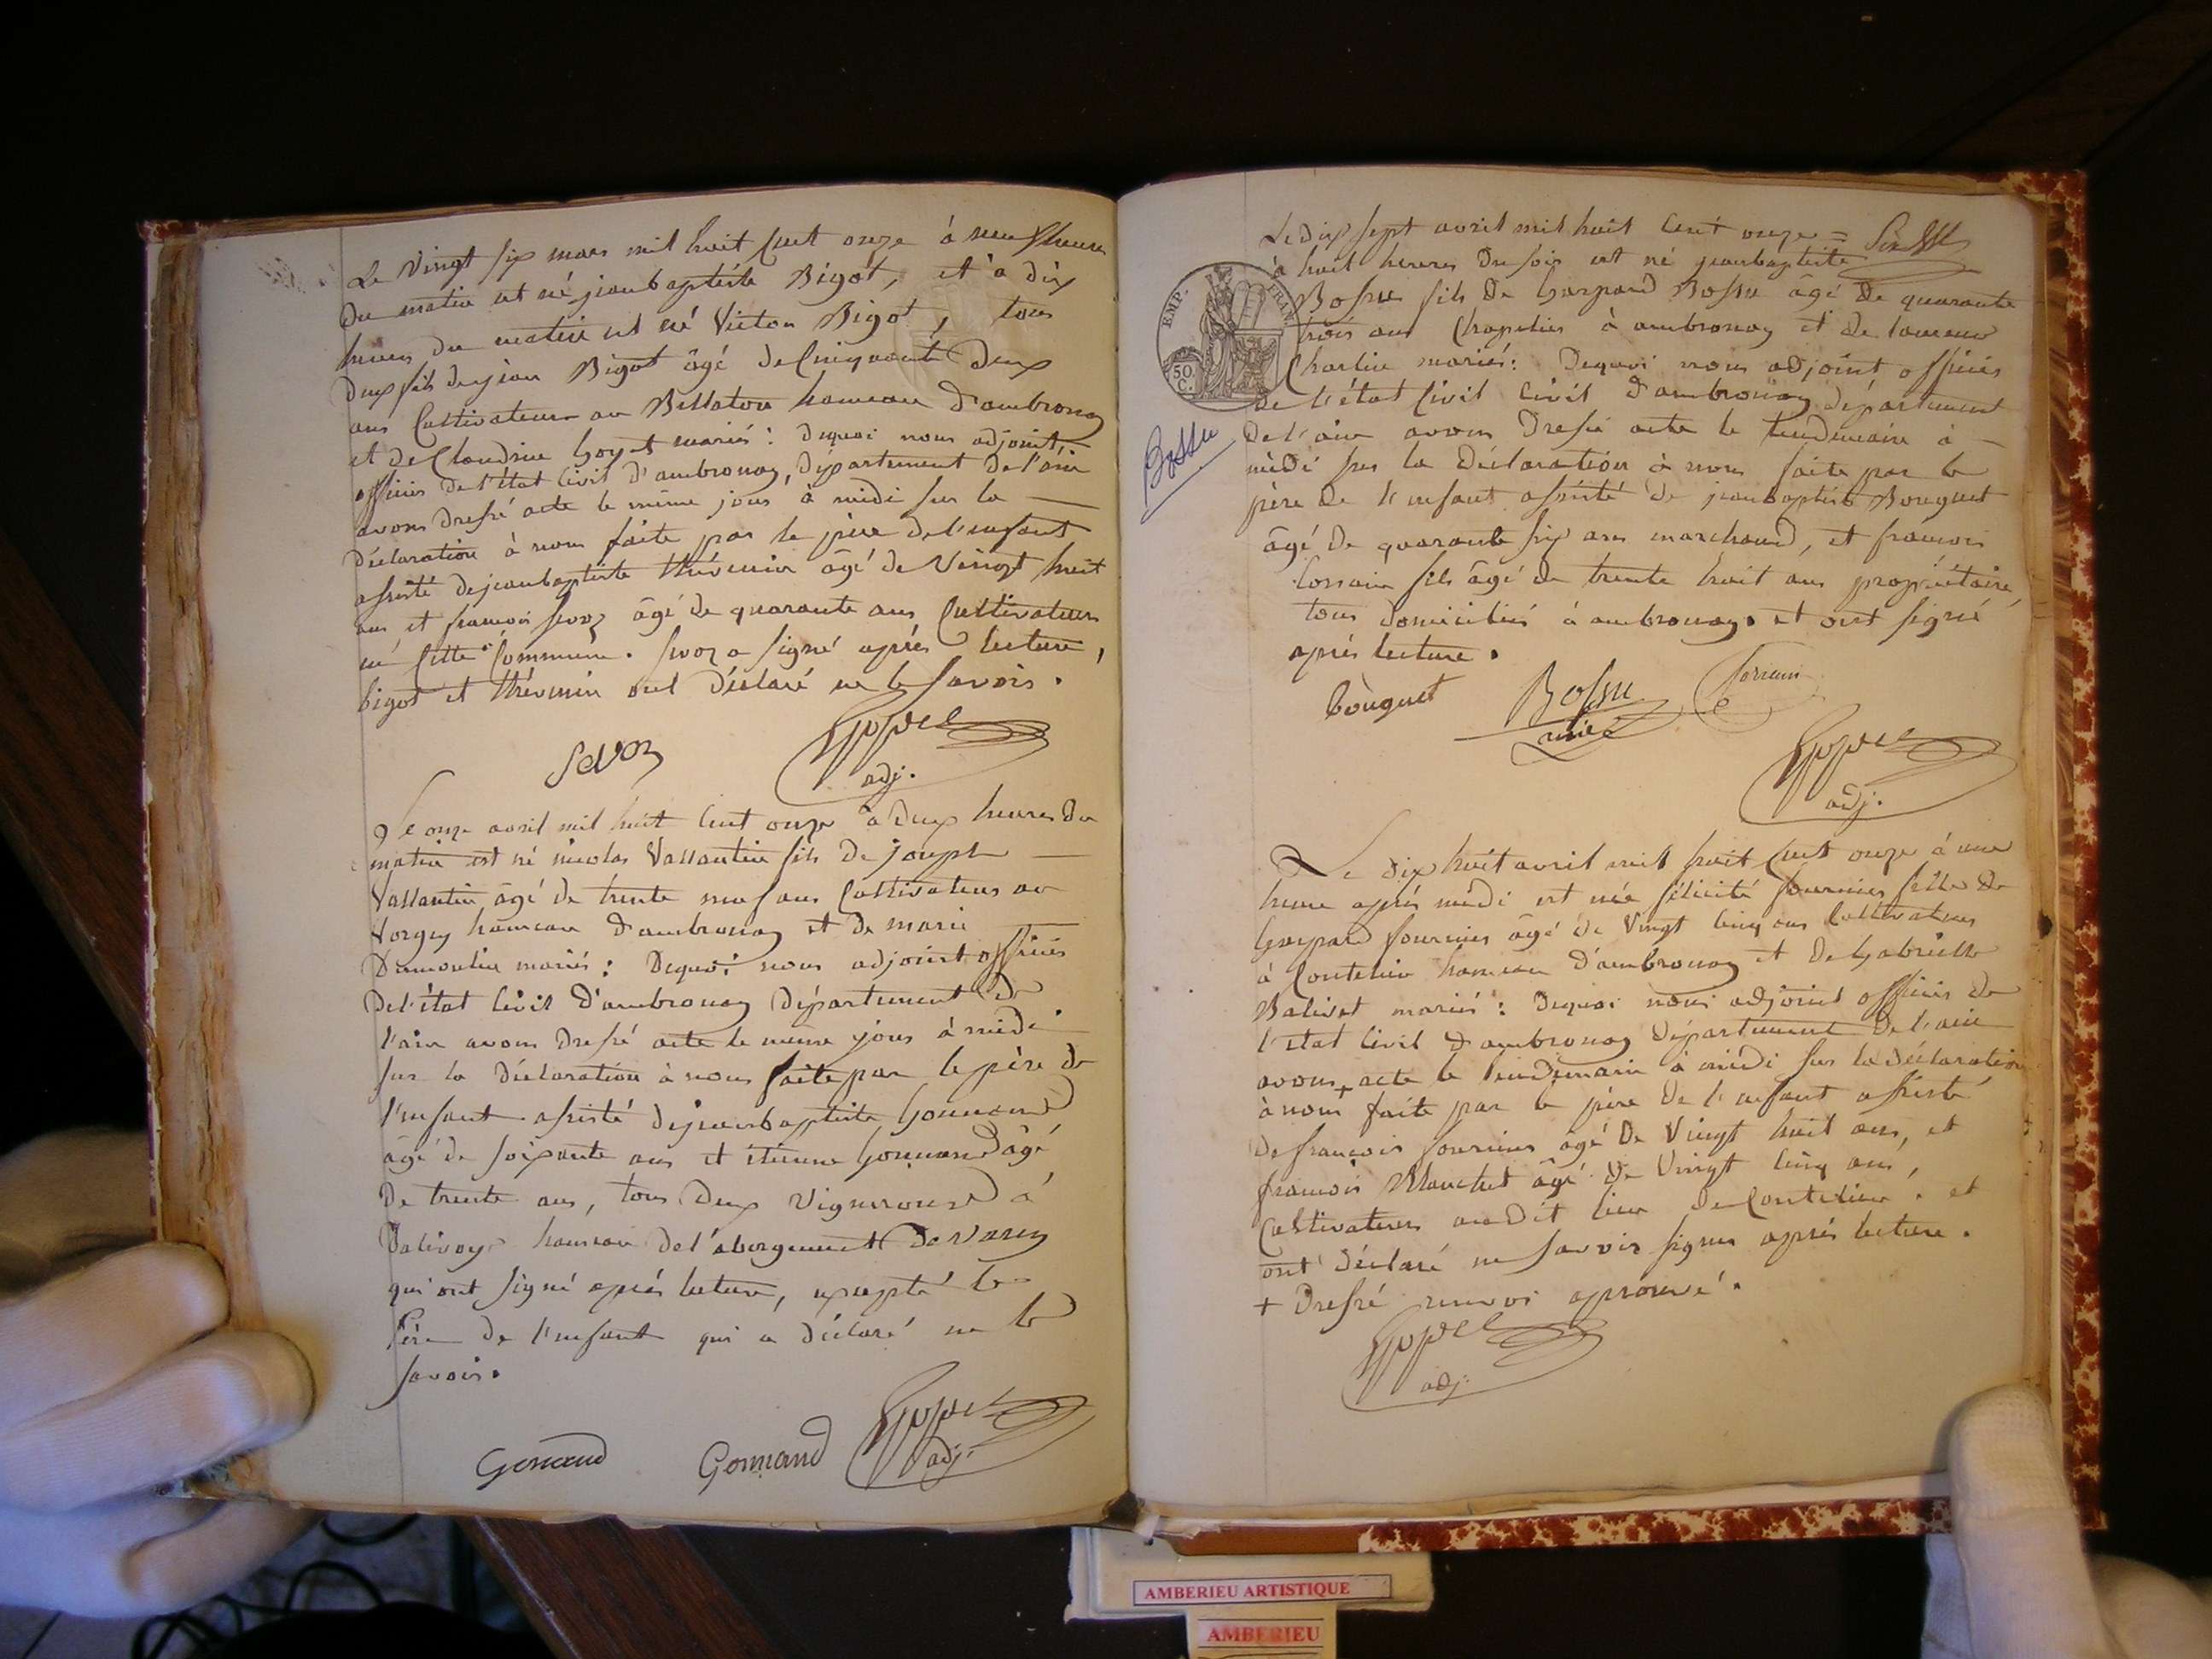 Le vingt six mars mil huit cent onze à neuf heures
du matin est né jeanbaptiste Bigot, et à dix
heures du matin est né Victor Bigot, tous
deux fils de jean Bigot âgé de Cinquante deux
ans Cultivateur au Bellaton hameau d'ambronay
et de Claudine Goyet mariés : dequoi nous adjoint
officier de l'état Civil d'ambronay, département de l'ain
avons dressé acte le même jour à midi sur la
déclaration à nous faite par le père de l'enfant
assisté de jeanbaptiste thévenin âgé de Vingt huit
ans, et francois sevoz âgé de quarante ans Cultivateurs
en Cette Commune. sevoz a signé après lecture,
bigot et thévenin ont déclaré ne le savoir.
Sevoz
adj.
Le onze avril mil huit cent onze à deux heures du
matin est né nicolas Vallantin fils de joseph
Vallantin âgé de trente neuf ans Cultivateur au
Vorgey hameau d'ambronay et de marie
Dumoulin mariés : Dequoi nous adjoint officier
de l'état Civil d'ambronay Département de
l'ain avons dressé acte le même jour à midi
sur la déclaration à nous faite par le père de
l'enfant assisté de jeanbaptiste Gonnand
âgé de soixante ans et étienne Gonnand âgé
De trente ans, tous deux Vignerons à
Dalivoye hameau de l'abergement de Varey
qui ont signé après lecture, excepté le
Père de l'enfant qui a déclaré ne le
savoir.
Gonnand Gonnand
adj.
Le dix sept avril mil huit Cent onze =
à huit heures du soir est né jeanbaptiste
Bossu fils de Gaspard Bossu âgé de quarante
trois ans Chapelier à ambronay et de
Charlin mariés : Dequoi nous adjoint officier
de l'état Civil Civil d'ambronay département
de l'ain avons dressé acte le lendemain à
midi sur la déclaration à nous faite par le
père de l'enfant assisté de jeanbaptiste Bouquet
âgé de quarante six ans marchand, et francois
lorrain fils âgé de trente huit ans propriétaire,
tous domiciliés à ambronay. et ont signé
après lecture.
EMP. FRAN.
50.
C.
Bossu
bouquet Bossu lorrain
adj.
Le dix huit avril mil huit Cent onze à une
heure après midi est née félicité fournier fille de
Gaspard fournier âgé de Vingt Cinq ans Cultivateur
à Coutelieu hameau d'ambronay et de Gabrielle
Balivet mariés : dequoi nous adjoint officier de
l'état Civil d'ambronay Département de l'ain
avons + acte le lendemain à midi sur la déclaration
à nous faite par le père de l'enfant assisté
de francois fournier âgé de Vingt huit ans, et
francois Mouchet âgé de Vingt Cinq ans,
Cultivateurs audit lieu de Coutelieu. et
ont déclaré ne savoir signer après lecture.
+ dressé renvoi approuvé.
adj.
AMBERIEU ARTISTIQUE
AMBERIEU